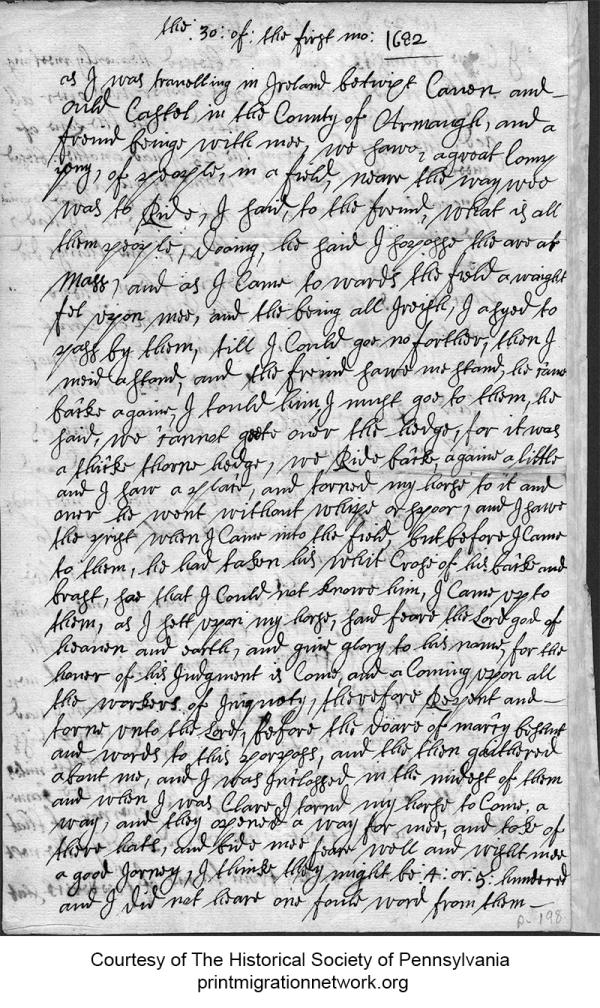 the: 30: of: the first mo: 1682
as I was travelling in Ireland betwixt Caven and
ould Castel, in the County of Armaugh, and a
freind beinge with mee, we sawe, a great Com
pony, of people, in a field, neare the way wee
was to Ride, I said, to the freind, what is all
them people, dooing, he said I sopose the are at
Mass, and as I Came to wards the field a waight
fel upon mee, and the being all Ireish, I asyed to
pass by them, till I Could goe no forther, then I
meid a stand, and the freind sawe me stand, he came
backe againe, I tould him, I must goe to them, he
said, we cannot gete over the hedge, for it was
a thicke thorne hedge, we Ride backe againe a little
and I saw a place, and torned my horse to it and
over he went without whipe or spoor, and I sawe
the prist when I Came into the field, but before I Came
to them, he had taken his whit Crose of his backe and
brast, soe that I Could not knowe him, I Came up to
them, as I sett upon my horse, said feare the Lord god of
heaven and earth, and give glory to his name, for the
hower of his Judgment is Come, and a Coming upon all
the workers of Iniquety, therefore Repent and
torne unto the Lord, before the doare of marcy be shut
and words to this porposs, and the then gathered
about me, and I was Inclossed in the midest of them
and when I was Clare, I tornd my horse to Come, a
way, and they opened a way for mee, and toke of
there hats, and bide mee fare well and wisht mee
a good Jorney, I thinke they might be 4: or: 5: hundered
and I did not heare one foule word from them
p. 198
Courtesy of The Historical Society of Pennsylvania
printmigrationnetwork.org